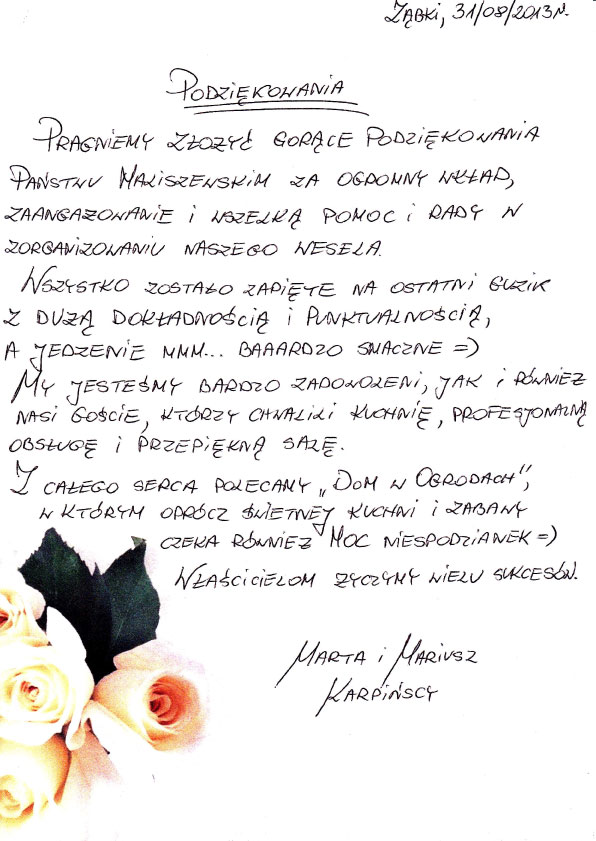 Ząbki, 31/08/2013r.
Podziękowania
Pragniemy złożyć gorące podziękowania
Państwu Maliszewskim za ogromny wkład,
zaangażowanie i wszelką pomoc i rady w
zorganizowaniu naszego wesela.
Wszystko zostało zapięte na ostatni guzik
z dużą dokładnością i punktualnością,
a jedzenie mmm... baaardzo smaczne =)
My jesteśmy bardzo zadowoleni, jak i również
nasi goście, którzy chwalili kuchnię, profesjonalną
obsługę i przepiękną salę.
Z całego serca polecamy „Dom w Ogrodach",
w którym oprócz świetnej kuchni i zabawy
czeka również moc niespodzianek =)
Właścicielom życzymy wielu sukcesów.
Marta i Mariusz
Karpińscy